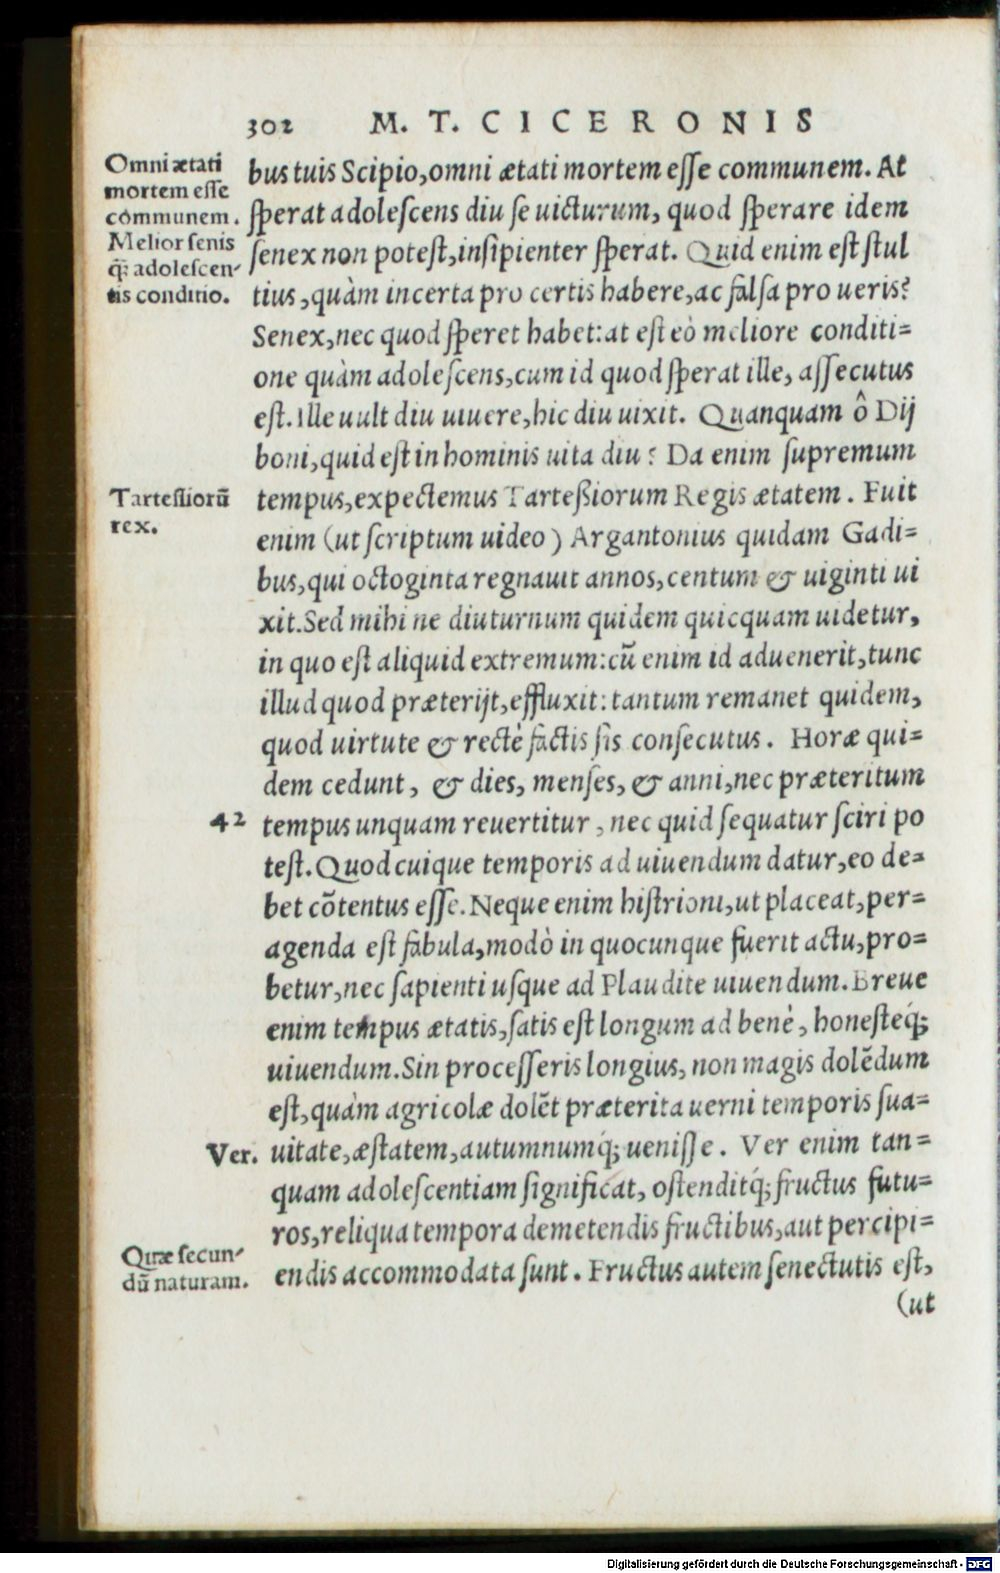 302 M. T. CICERONIS
Omni ætati
mortem esse
communem.
Melior senis
q̃; adolescen-
tis conditio.
bus tuis Scipio, omni ætati mortem esse communem. At
sperat adolescens diu se uicturum, quod sperare idem
senex non potest, insipienter sperat. Quid enim est stul
tius, quàm incerta pro certis habere, ac falsa pro ueris?
Senex, nec quod speret habet: at est eò meliore conditi=
one quàm adolescens, cum id quod sperat ille, assecutus
est. Ille uult diu uiuere, hic diu uixit. Quanquam ô Dij
boni, quid est in hominis uita diu? Da enim supremum
Tartessiorũ
rex.
tempus, expectemus Tarteßiorum Regis ætatem. Fuit
enim (ut scriptum uideo) Argantonius quidam Gadi=
bus, qui octoginta regnauit annos, centum & uiginti ui
xit. Sed mihi ne diuturnum quidem quicquam uidetur,
in quo est aliquid extremum: cũ enim id aduenerit, tunc
illud quod præterijt, effluxit: tantum remanet quidem,
quod uirtute & rectè factis sis consecutus. Horæ qui=
dem cedunt, & dies, menses, & anni, nec præteritum
42 tempus unquam reuertitur, nec quid sequatur sciri po
test. Quod cuique temporis ad uiuendum datur, eo de=
bet cõtentus esse. Neque enim histrioni, ut placeat, per=
agenda est fabula, modò in quocunque fuerit actu, pro=
betur, nec sapienti usque ad Plaudite uiuendum. Breue
enim tempus ætatis, satis est longum ad benè, honesteq́;
uiuendum. Sin processeris longius, non magis dolẽdum
est, quàm agricolæ dolẽt præterita uerni temporis sua=
Ver. uitate, æstatem, autumnumq́; uenisse. Ver enim tan=
quam adolescentiam significat, ostenditq́; fructus futu=
ros, reliqua tempora demetendis fructibus, aut percipi=
Quæ secun-
dũ naturam.
endis accommodata sunt. Fructus autem senectutis est,
(ut
Digitalisierung gefördert durch die Deutsche Forschungsgemeinschaft - DFG